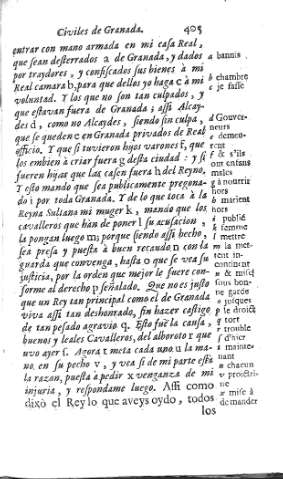 Civiles de Granada. 405
entrar con mano armada en mi casa Real,
que sean desterrados a de Granada, y dados
por traydores, y confiscados sus bienes à mi
Real camara b, para que dellos yo haga c à mi
voluntad. Y los que no son tan culpados, y
que estavan fuera de Granada; assi Alcay-
des d, como no Alcaydes, siendo sin culpa,
que se queden e en Granada privados de Real
officio. Y que si tuvieron hijos varones f, que
los embien à criar fuera g desta ciudad: y si
fueren hijas que las casen fuera h del Reyno.
Y esto mando que sea publicamente pregona-
do i por toda Granada. Y de lo que toca à la
Reyna Sultana mi muger k, mando que los
cavalleros que han de poner l su acusacion,
la pongan luego m; porque siendo assi hecho,
sea presa y puesta à buen recaudo n con la
guarda que convenga, hasta o que se vea su
justicia, por la orden que mejor le fuere con-
forme al derecho p señalado. Que no es justo
que un Rey tan principal como el de Granada
viva assi tan deshonrado, sin hazer castigo
de tan pesado agravio q. Esto fuè la causa,
buenos y leales Cavalleros, del alboroto r que
uvo ayer s. Agora t meta cada uno u la ma-
no en su pecho v, y vea si de mi parte està
la razon, puesta à pedir x venganza de mi
injuria, y respondame luego. Assi como
dixò el Rey lo que aveys oydo, todos
los
a bannis
b chambre
c je fasse
d Gouver-
neurs
e demeu-
rent
f & s'ils
ont enfans
masles
g à nourrir
hors
h marient
hors
i publié
k femme
l mettre
m la met-
tent in-
continent
n & mise
sous bon-
ne garde
o jusques
p le droict
q tort
r trouble
s d'hier
t mainte-
nant
u chacun
v poictri-
ne
x mise à
demander